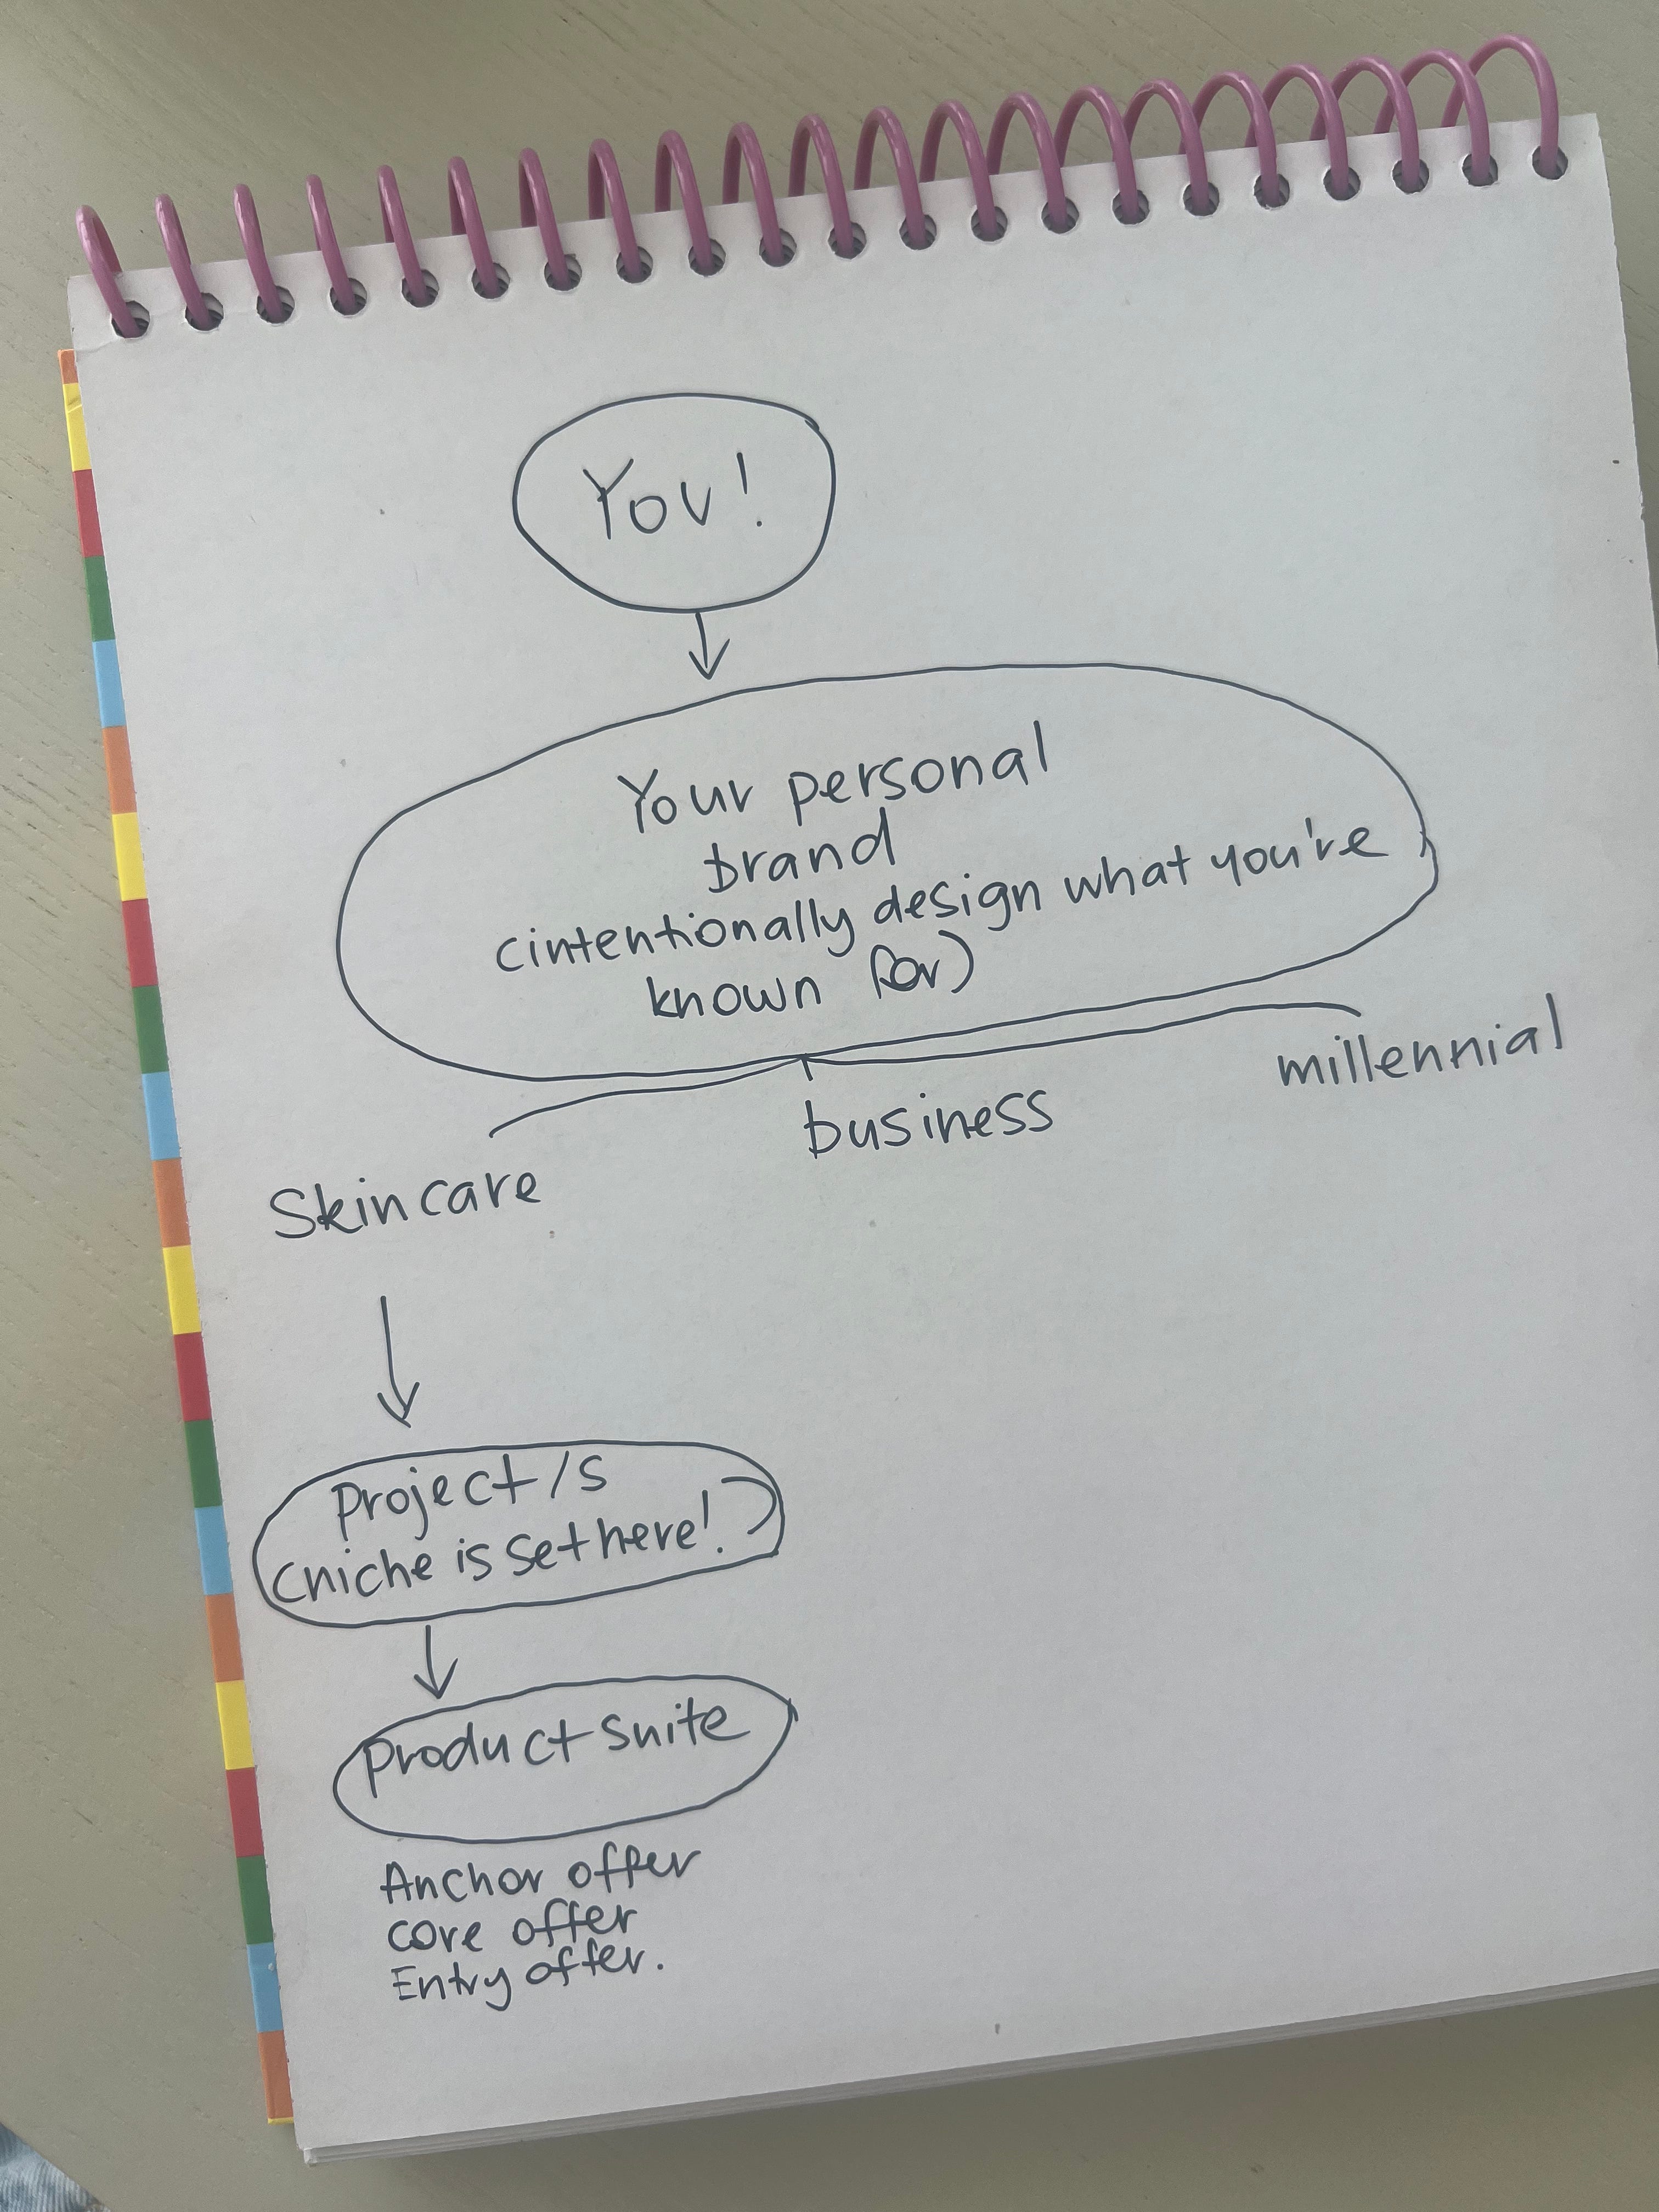 You!
Your personal
brand
(intentionally design what you're
known for)
Skincare
business
millennial
Project/s
(niche is set here!)
Product suite
Anchor offer
core offer
Entry offer.